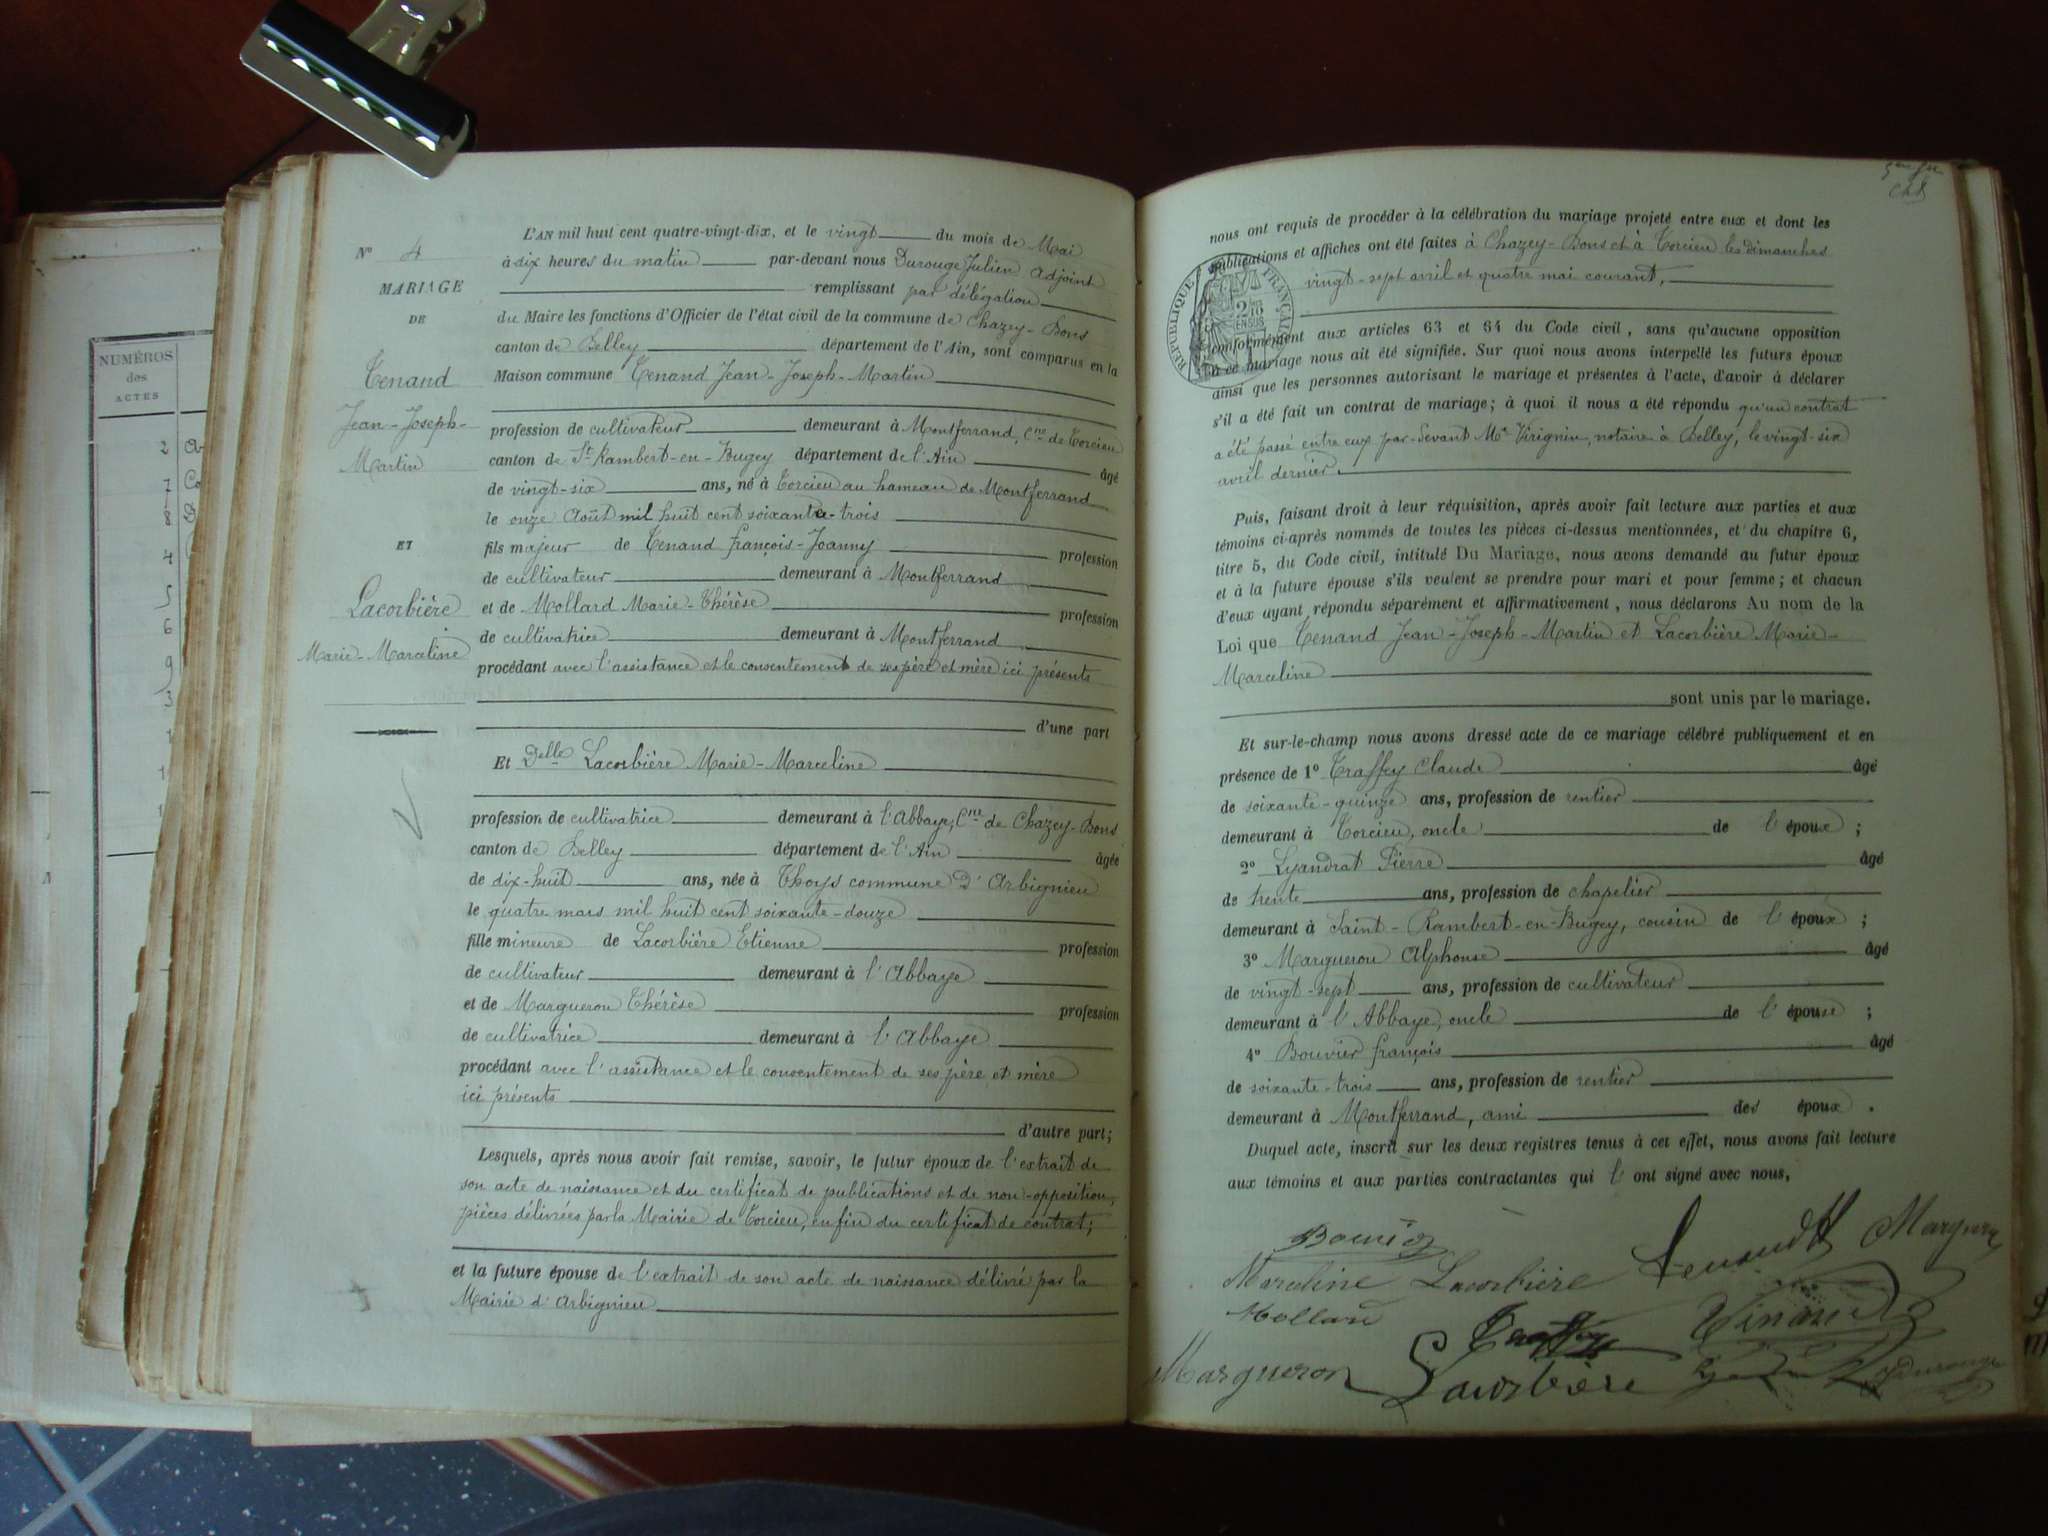 NUMÉROS
des
ACTES
2
7
8
4
5
6
9
3
N° 4
MARIAGE
DE
Tenand
Jean-Joseph-
Martin
ET
Lacorbière
Marie-Marceline
L'AN mil huit cent quatre-vingt-dix, et le vingt du mois de Mai
à six heures du matin par-devant nous Durouge Julien adjoint
remplissant par délégation
du Maire les fonctions d'Officier de l'état civil de la commune de Chazey-Bons
canton de Belley département de l'Ain, sont comparus en la
Maison commune Tenand Jean-Joseph-Martin
profession de cultivateur demeurant à Montferrand, Cne de Torcieu
canton de St Rambert-en-Bugey département de l'Ain âgé
de vingt-six ans, né à Torcieu au hameau de Montferrand
le onze Août mil huit cent soixante-trois
fils majeur de Tenand françois-Joanny profession
de cultivateur demeurant à Montferrand
et de Mollard Marie-Thérèse profession
de cultivatrice demeurant à Montferrand
procédant avec l'assistance et le consentement de ses père et mère ici présents
d'une part
Et Delle Lacorbière Marie-Marceline
profession de cultivatrice demeurant à l'Abbaye, Cne de Chazey-Bons
canton de Belley département de l'Ain âgée
de dix-huit ans, née à Thoys commune d'Arbignieu
le quatre mars mil huit cent soixante-douze
fille mineure de Lacorbière Etienne profession
de cultivateur demeurant à l'Abbaye
et de Margueron Thérèse profession
de cultivatrice demeurant à l'Abbaye
procédant avec l'assistance et le consentement de ses père et mère
ici présents
d'autre part;
Lesquels, après nous avoir fait remise, savoir, le futur époux de l'extrait de
son acte de naissance et du certificat de publications et de non-opposition,
pièces délivrées par la Mairie de Torcieu, enfin du certificat de contrat;
et la future épouse de l'extrait de son acte de naissance délivré par la
Mairie d'Arbignieu
nous ont requis de procéder à la célébration du mariage projeté entre eux et dont les
publications et affiches ont été faites à Chazey-Bons et à Torcieu les dimanches
vingt-sept avril et quatre mai courant,
RÉPUBLIQUE FRANÇAISE
conformément aux articles 63 et 64 du Code civil, sans qu'aucune opposition
à ce mariage nous ait été signifiée. Sur quoi nous avons interpellé les futurs époux
ainsi que les personnes autorisant le mariage et présentes à l'acte, d'avoir à déclarer
s'il a été fait un contrat de mariage; à quoi il nous a été répondu qu'un contrat
a été passé entre eux par-devant Me Virignin, notaire à Belley, le vingt-six
avril dernier.
Puis, faisant droit à leur réquisition, après avoir fait lecture aux parties et aux
témoins ci-après nommés de toutes les pièces ci-dessus mentionnées, et du chapitre 6,
titre 5, du Code civil, intitulé Du Mariage, nous avons demandé au futur époux
et à la future épouse s'ils veulent se prendre pour mari et pour femme; et chacun
d'eux ayant répondu séparément et affirmativement, nous déclarons Au nom de la
Loi que Tenand Jean-Joseph-Martin et Lacorbière Marie-
Marceline
sont unis par le mariage.
Et sur-le-champ nous avons dressé acte de ce mariage célébré publiquement et en
présence de 1° Traffey Claude âgé
de soixante-quinze ans, profession de rentier
demeurant à Torcieu, oncle de l'époux;
2° Lyandrat Pierre âgé
de trente ans, profession de chapelier
demeurant à Saint-Rambert-en-Bugey, cousin de l'époux;
3° Margueron Alphonse âgé
de vingt-sept ans, profession de cultivateur
demeurant à l'Abbaye, oncle de l'épouse;
4° Bouvier françois âgé
de soixante-trois ans, profession de rentier
demeurant à Montferrand, ami des époux.
Duquel acte, inscrit sur les deux registres tenus à cet effet, nous avons fait lecture
aux témoins et aux parties contractantes qui l'ont signé avec nous,
Bouvier
Marceline Lacorbière
Mollard
Traffey
Margueron
Lacorbière
Durouge